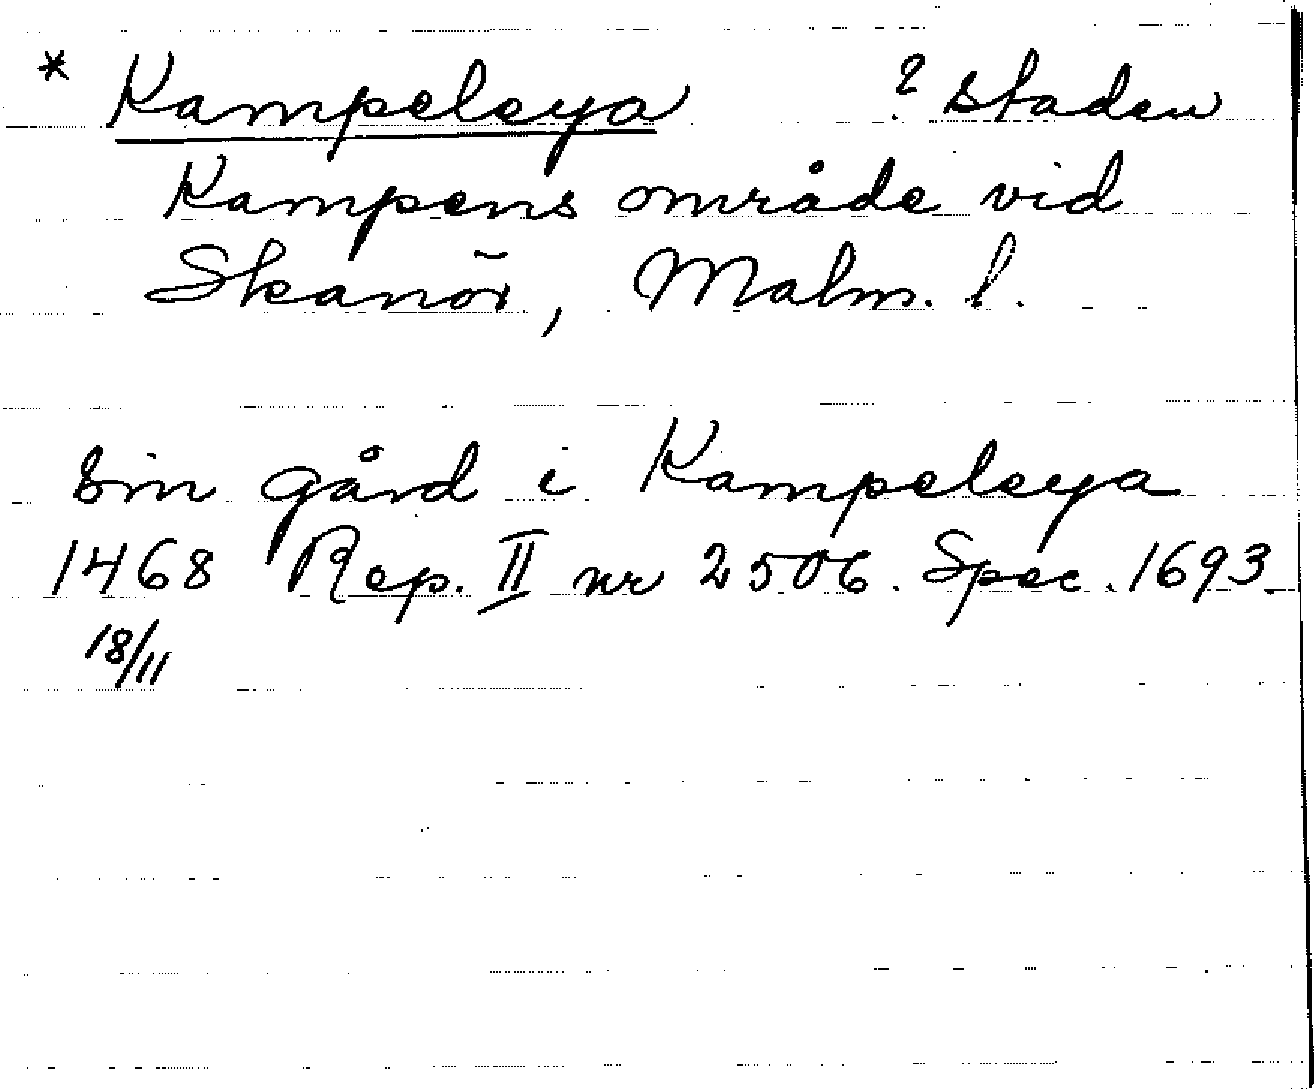 * Kampeleya ? staden
Kampens område vid
Skanör, Malm. l.
sin gård i Kampeleya
1468 Rep. II nr 2506. Spec. 1693
18/11